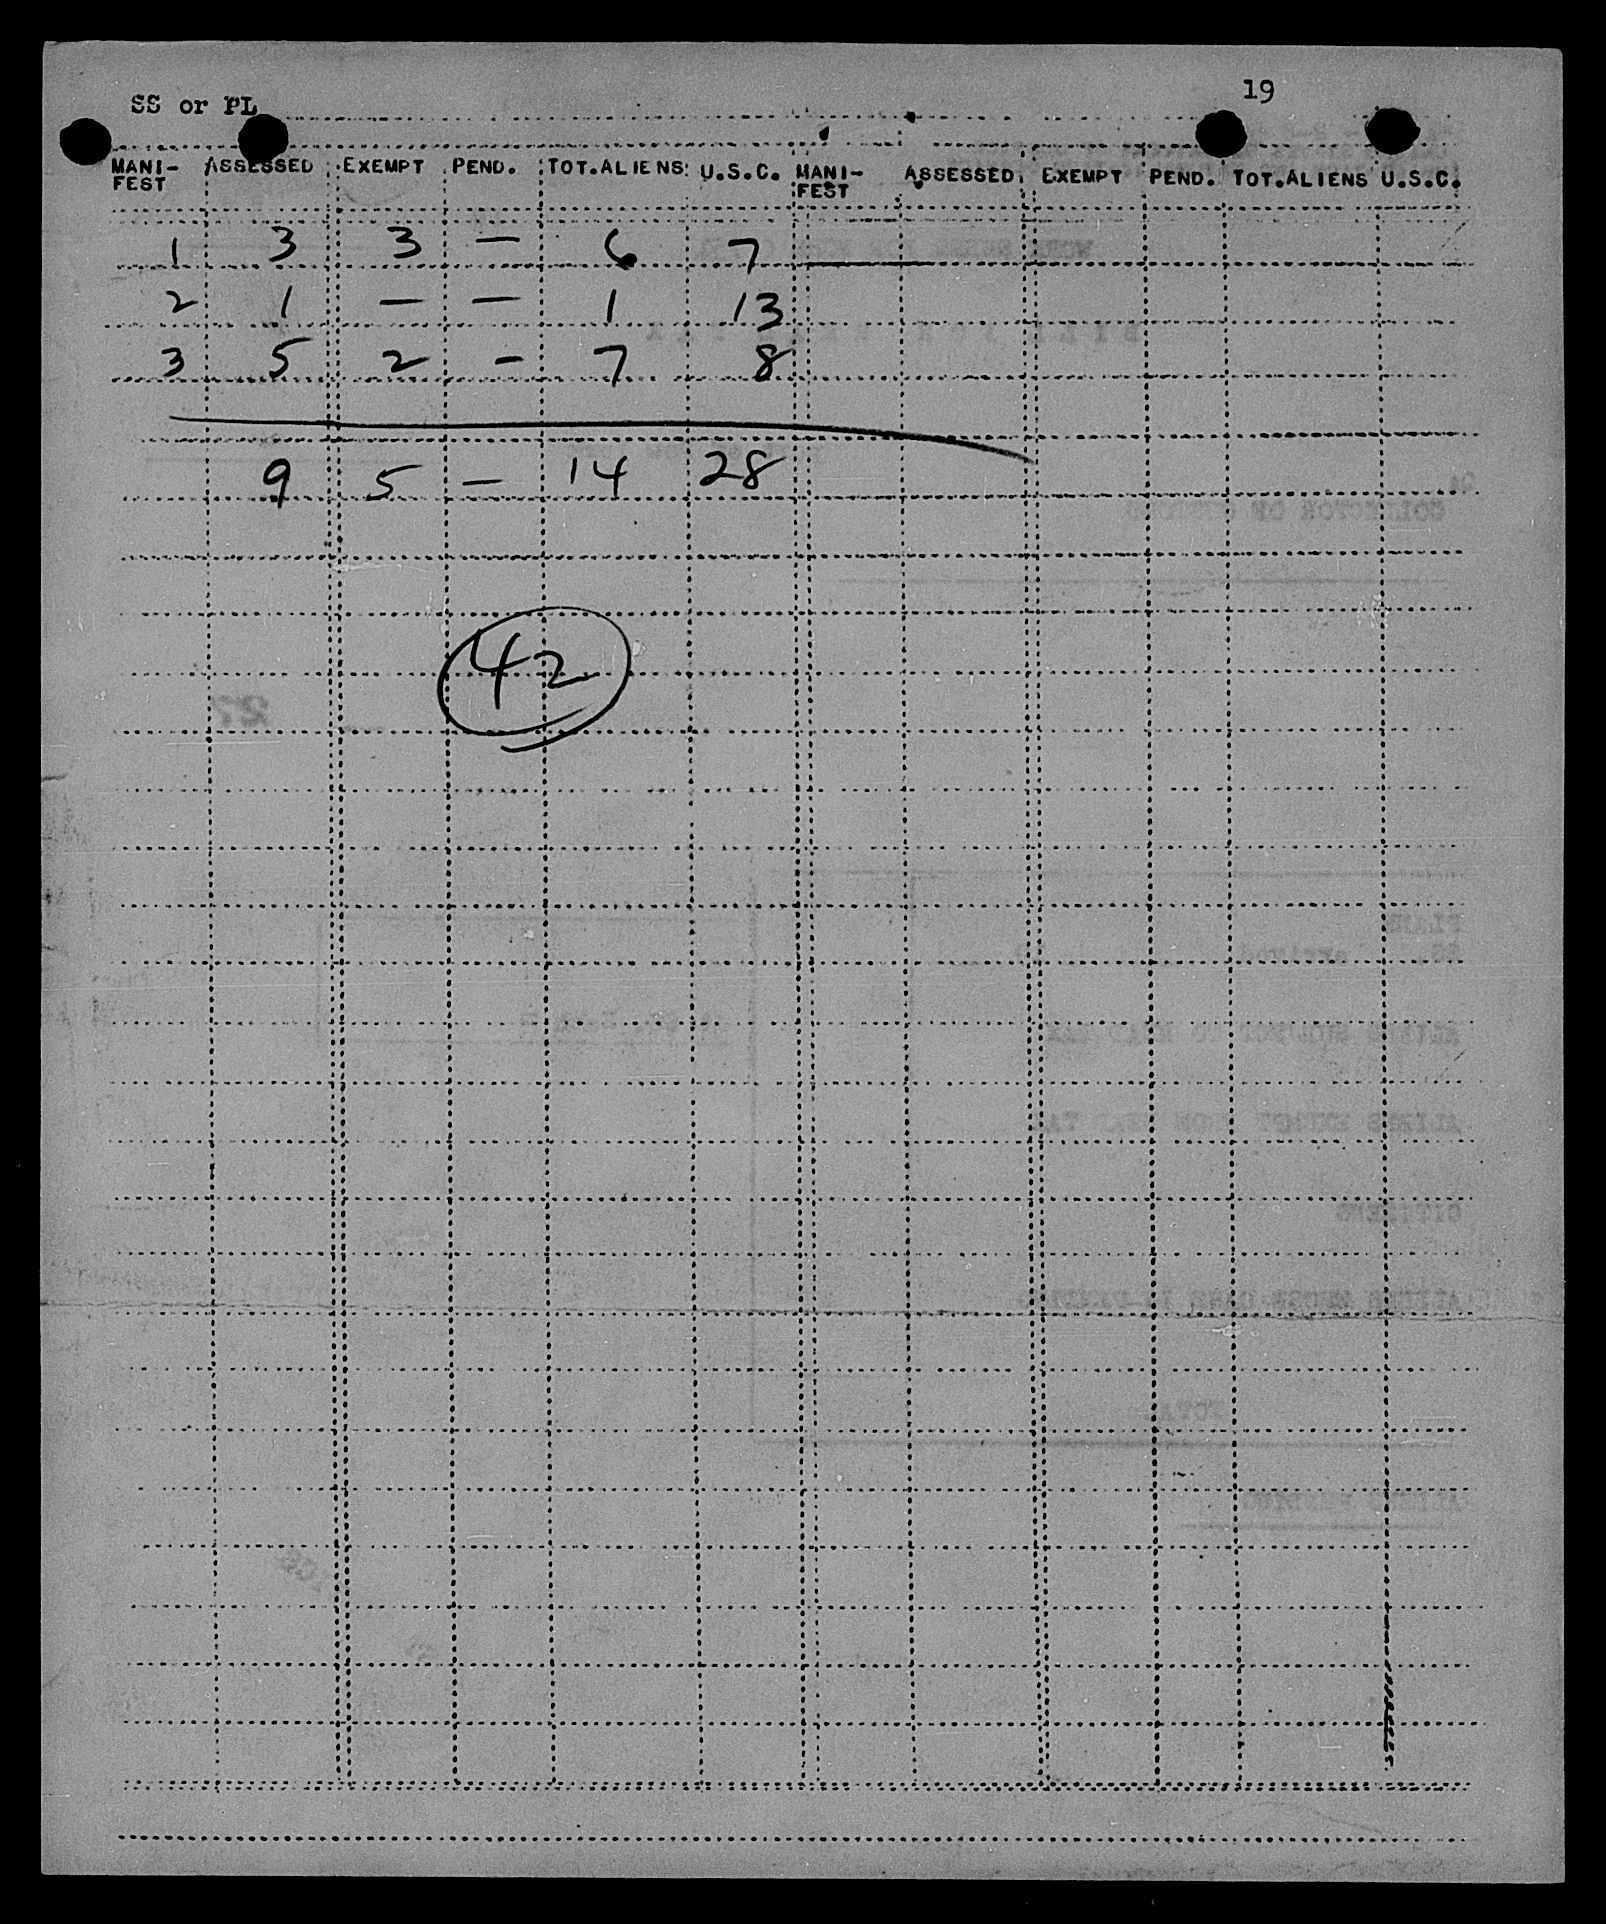 19
SS or PL
MANI-FEST ASSESSED EXEMPT PEND. TOT.ALIENS U.S.C. MANI-FEST ASSESSED EXEMPT PEND. TOT.ALIENS U.S.C.
1 3 3 — 6 7
2 1 — — 1 13
3 5 2 — 7 8
9 5 — 14 28
42